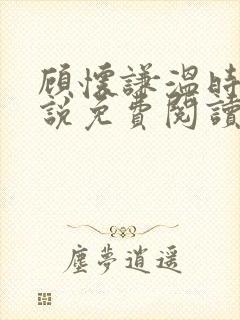 顾懷謙溫時
説免費閱讀
塵夢逍遥